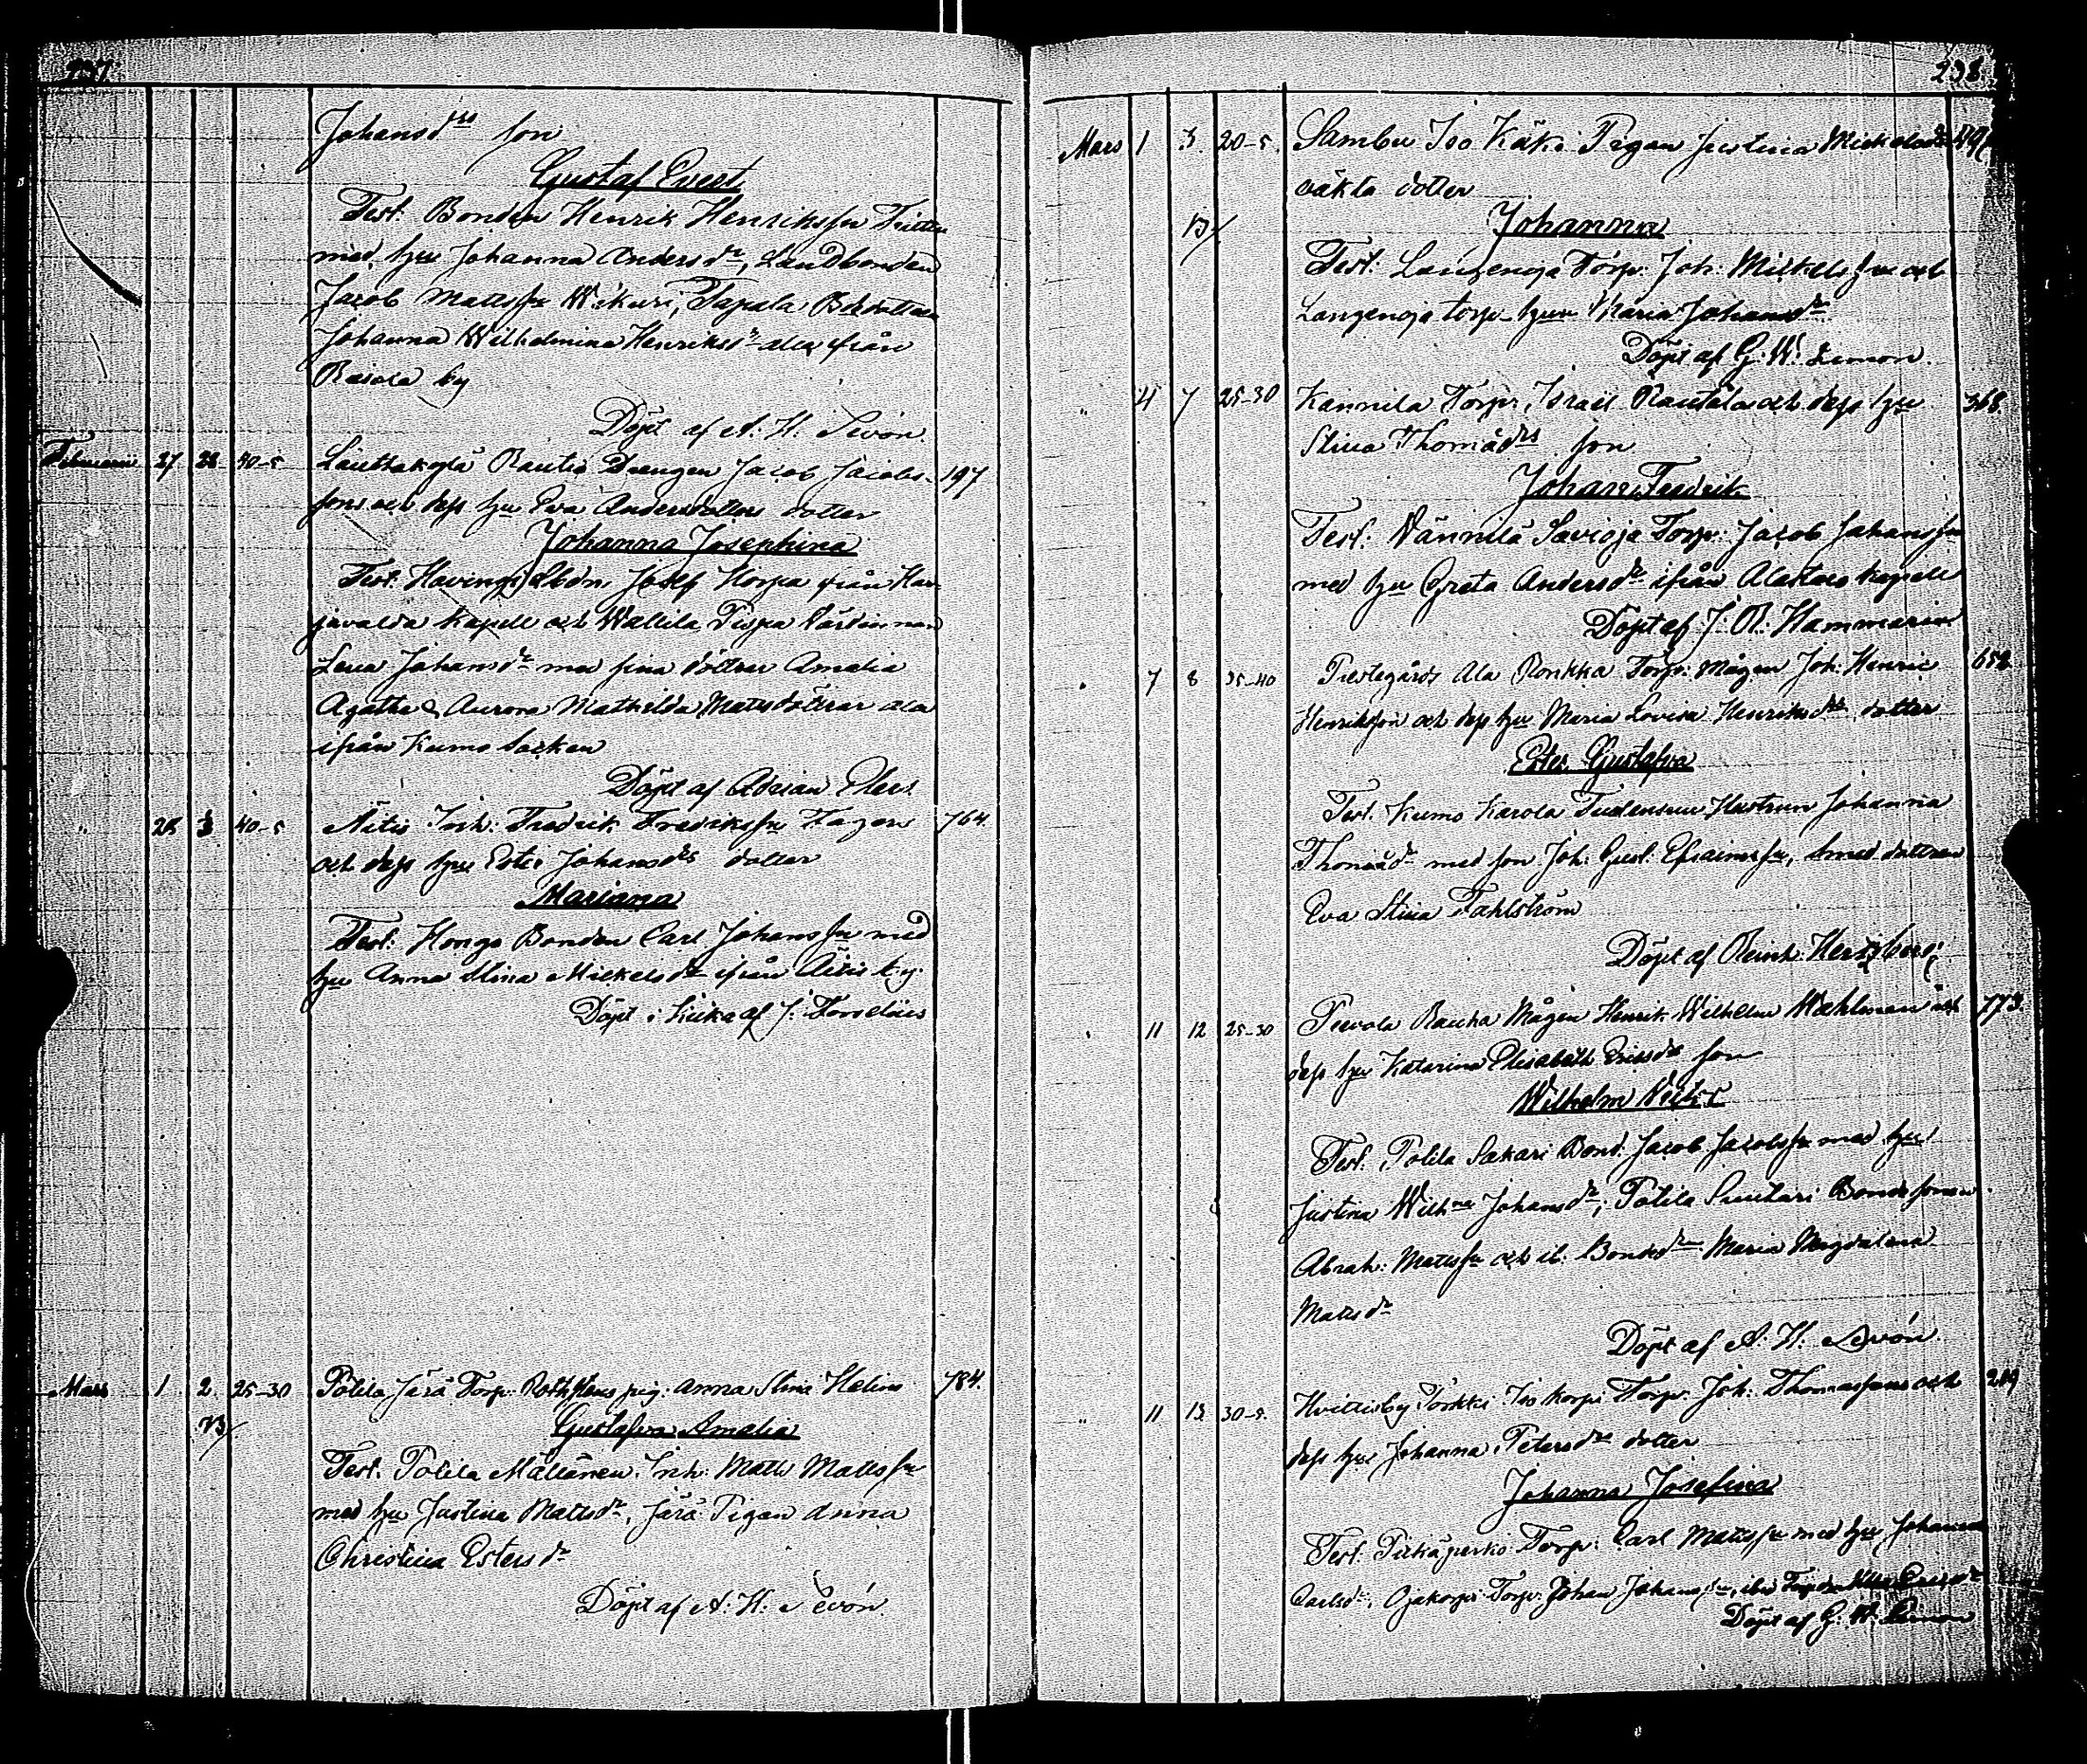 237.
Johansdrs son
Gustaf Evert
Test: Bonden Henrik Henriksson
med hu Johanna Andersdr, Landbonden
Jacob Mattsson Wikari, Tapala Bdedottren
Johanna Wilhelmina Henriksdr alla ifrån
Raisala by
Döpt af A. H. Levón
Februarii 27 28 40-5 Lauttakylä Rautio Drengen Jacob Jacobs- 197
sons och dess hu Eva Andersdotters dotter
Johanna Josephina
Test: Havingi Lbdn Josef Horpa från Har-
javalda Kapell och Wallila Pispa Värdinnan
Lena Johansdr med sina döttrar Amalia
Agatha & Aurora Mathilda Mattsdöttrar alla
ifrån Kumo Socken
Döpt af Adrian Elers
" 28 3 40-5 Äetis Inh: Fredrik Fredriksson Fagers 764.
och dess hu Ester Johansdrs dotter
Mariana
Test: Hongo Bonden Carl Johansson med
hu Anna Stina Mickelsdr ifrån Äetis by.
Döpt i Kiuka af J. Forselius
Mars 1 2 25-30 Potila Järä Torp: Rothstens pig: Anna Stina Helins 784.
13/
Gustafva Amalia
Test: Potila Mällänen Inh: Matts Mattsson
med hu Justina Mattsdr, Järä Pigan Anna
Christina Estersdr
Döpt af A. H. Levón
238
Mars 1 3 20-5. Sambu Iso Käki Pigan Justina Mickelsdrs
oäkta dotter
13/
Johanna
Test: Langenoja Torp: Joh: Mickelsson och
Langenoja torp. hun Maria Johansdr
Döpt af G. W. Limon.
" 4 7 25-30 Kannila Torp: Israel Rautala och dess hu 368.
Stina Thomädrs son
Johan Fredrik
Test: Wännilä Savioja Torp: Jacob Johansson
med hu Greta Andersdr ifrån Alastaro kapell
Döpt af J. R. Hammarin
" 7 8 35-40 Prestegårds Ala Ronkka Torp: Mågen Joh: Henric 658
Henriksson och dess hu Maria Lovisa Henriksdrs dotter
Ester Gustafva
Test. Kumo Karola Hustrun Johanna
Thomädr med son Joh: Gust: Efraimsson, Smed dottren
Eva Stina Fahlström
Döpt af Reinh: Hertzberg
" 11 12 25-30 Peevola Rauha Mågen Henrik Wilhelm Wahlman och 773.
dess hu Katarina Elisabeth Ericsdrs son
Wilhelm Victor
Test. Potila Sakari Bond. Jacob Jacobsson med hu
Justina Wilhna Johansdr, Potila Suutari Bondesonen
Abrah: Mattsson och ib: Bondedr Maria Magdalena
Mattsdr
Döpt af A. H. Levón
" 11 13 30-5. Hvittisby Pörkki Iso Korpi Torp: Joh: Thomassons och 219
dess hu Johanna Petersdrs dotter
Johanna Josefina
Test: Pitkäperko Torp: Carl Mattsson med hu Johanna
Carlsdr, Ojakorpi Torp: Johan Johansson, ibn
Döpt af G. W. Limon